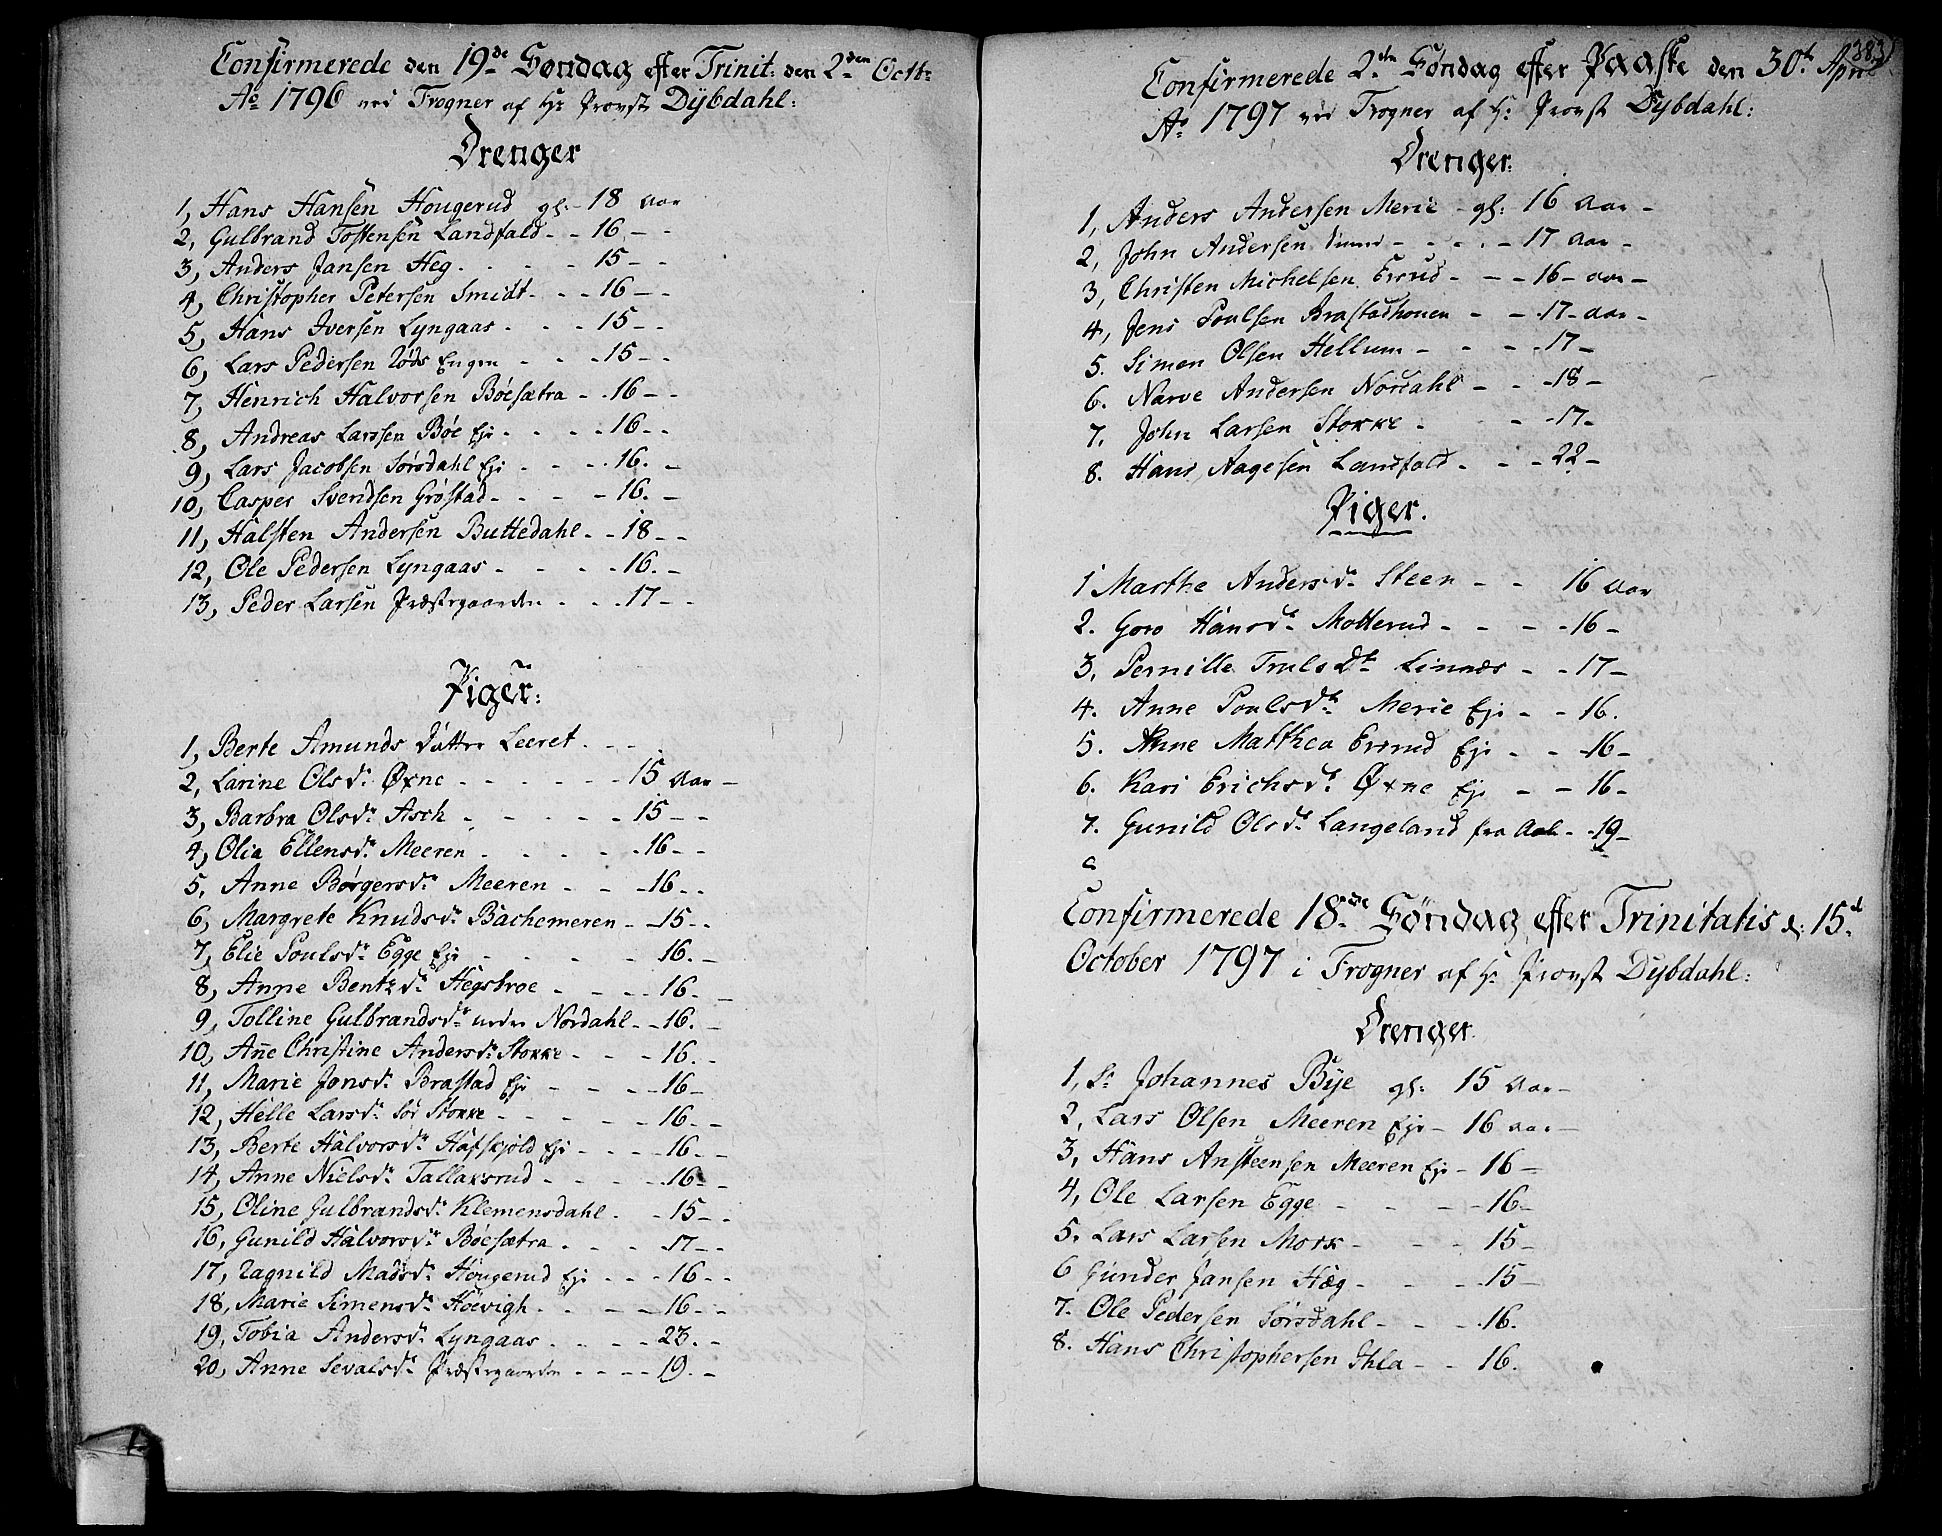 Confirmerede den 19de Søndag efter Trinit: den 2den Octb:
Ao 1796 ved Frogner af Hr Provst Dÿbdahl:
Drenger
1, Hans Hansen Hougerud gl: 18 Aar
2, Gulbrand Tostensen Landfald - - 16 - -
3, Anders Jansen Heg. - - - 15 - -
4, Christopher Petersen Smidt - - - 16 - -
5, Hans Iversen Lyngaas - - - 15 - -
6, Lars Pedersen Røds Engen - - - 15 - -
7, Henrich Halvorsen Bøesætra - - 16 - -
8, Andreas Larsen Bøe Eje - - - 16 - -
9, Lars Jacobsen Sørsdahl Eje - - - 16. -
10, Casper Svendsen Grøstad - - - - 16. -
11, Halsten Andersen Buttedahl - - 18 - -
12, Ole Pedersen Lyngaas - - - - 16. -
13, Peder Larsen Præstegaarden - - - 17 - -
Piger:
1, Berte Amunds Datter Leeret - - -
2, Larine Olsdr Øxne - - - - - 15 Aar -
3, Barbra Olsdr Asch - - - - - 15 - -
4, Olia Ellensdr Meeren - - - - 16 - -
5. Anne Børgersdr Meeren - - - 16 - -
6, Margrete Knudsdr Bachemeren - 15 - -
7, Elie Poulsdr Egge Eje - - - - 16. -
8, Anne Bentzdr Hegsbroe - - - - 16. -
9, Tolline Gulbrandsdr neder Nordahl - - 16. -
10, Anne Christine Andersdr Stokke - - - 16. -
11, Marie Jonsdr Brastad Eje - - - - 16 -
12, Helle Larsdr Sør Stokke - - - - 16. -
13, Berte Halvorsdr Hafskjold Eje - - - - 16. -
14, Anne Nielsdr Tallaksrud - - - - - 16 - -
15, Oline Gulbrandsdr Klemensdahl - - 15 - -
16, Gunild Halvorsdr Bøesætra - - - 17 - -
17, Ragnild Madsdr Hougerud Eje - - - 16 - -
18, Marie Simensdr Høevigh - - - - 16 - -
19, Tobia Andersdr Lyngaas - - - - 23. -
20, Anne Sevalsdr Præstegaarden - - - - 19. -
383
Confirmerede 2den Søndag efter Paaske den 30te April
Ao 1797 ved Frogner af Hr Provst Dybdahl:
Drenger.
1, Anders Andersen Merie - gl: 16 Aar -
2, John Andersen - - - - 17 Aar -
3, Christen Michelsen Evrud - - - 16 - aar -
4, Jens Poulsen Brastadhouen - - 17 - aar -
5. Simen Olsen Hellum - - - 17 -
6. Narve Andersen Nordahl - - - 18 -
7. John Larsen Stokke - - - 17 -
8. Hans Aagesen Landfald - - - 22 -
Piger.
1 Marthe Andersdr Steen - - 16 Aar
2. Goro Hansdr Motterud - - - - 16 -
3, Pernille Truls Dtr Linnæs - - 17 -
4. Anne Poulsdr Merie Eje - - 16.
5. Anne Matthea Evrud Eje - - 16 -
6. Kari Erichsdr Øxne Eje - - 16 -
7. Gunild Olsdr Langeland fra Aal - - 19 -
Confirmerede 18de Søndag efter Trinitatis d: 15d
October 1797 i Frogner af Hr Provst Dÿbdahl:
Drenger.
1, Sr Johannes Bÿe gl: 15 Aar -
2, Lars Olsen Meeren Eje - 16 aar -
3, Hans Ansteensen Meeren Eje - 16 -
4, Ole Larsen Egge - - - - 16 -
5. Lars Larsen Mork - - - - 15 -
6 Gunder Jansen Hæg - - - - 15 -
7. Ole Pedersen Sørsdahl - - - 16.
8. Hans Christophersen Ihla - - 16.